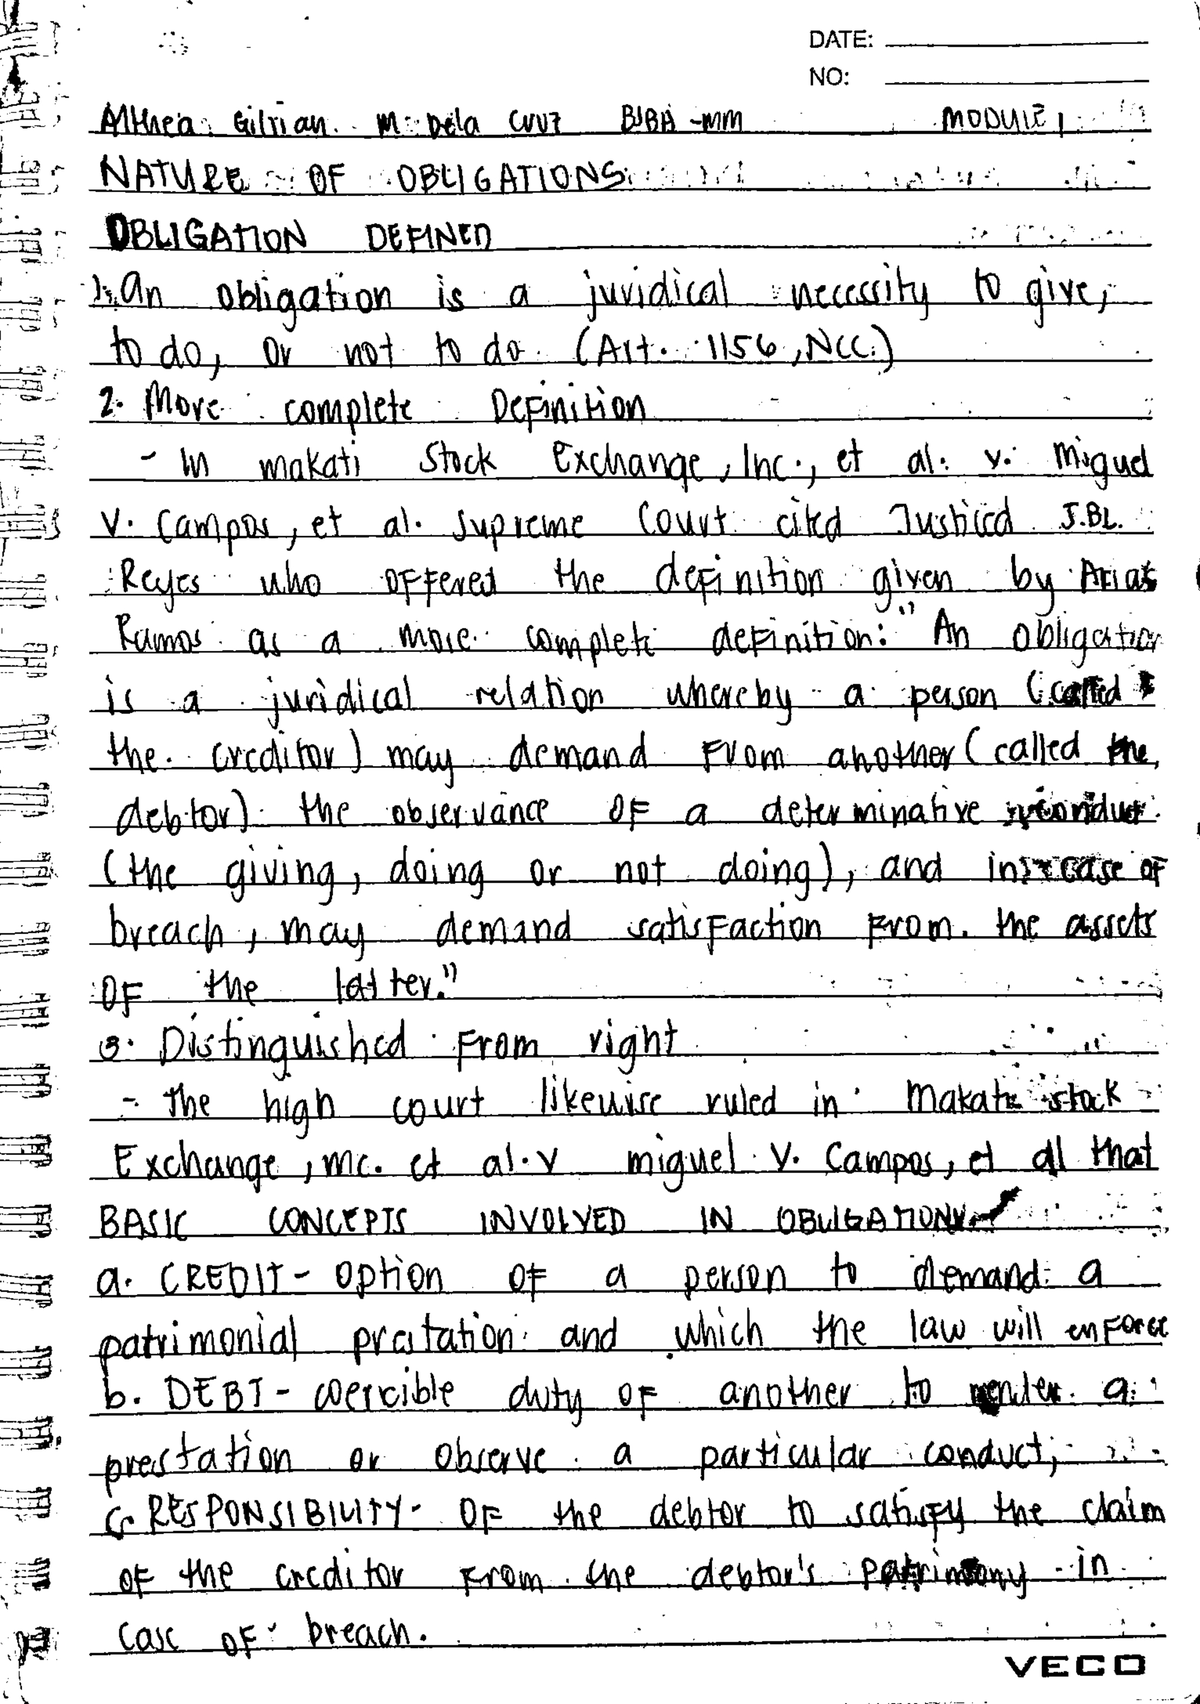 DATE:
NO:
Althea Gillian M. Dela Cruz BSBA -MM MODULE 1
NATURE OF OBLIGATIONS
OBLIGATION DEFINED
1. An obligation is a juridical necessity to give,
to do, or not to do (Art. 1156, NCC.)
2. More complete Definition
- In makati Stock Exchange, Inc., et al. v. Miguel
V. Campos, et al. Supreme Court cited Justiced J.BL.
Reyes who offered the definition given by Arias
Ramos as a more complete definition: "An obligation
is a juridical relation whereby a person (called
the creditor) may demand from another (called the
debtor) the observance of a determinative conduct
(the giving, doing or not doing), and in case of
breach, may demand satisfaction from the assets
of the latter."
3. Distinguished from right
- the high court likewise ruled in Makati stock
Exchange, Inc. et al. v miguel V. Campos, et al that
BASIC CONCEPTS INVOLVED IN OBLIGATIONS
a. CREDIT - option of a person to demand a
patrimonial prestation and which the law will enforce
b. DEBT - coercible duty of another to render a
prestation or observe a particular conduct;
c. RESPONSIBILITY - of the debtor to satisfy the claim
of the creditor from the debtor's patrimony in
case of breach.
VECO